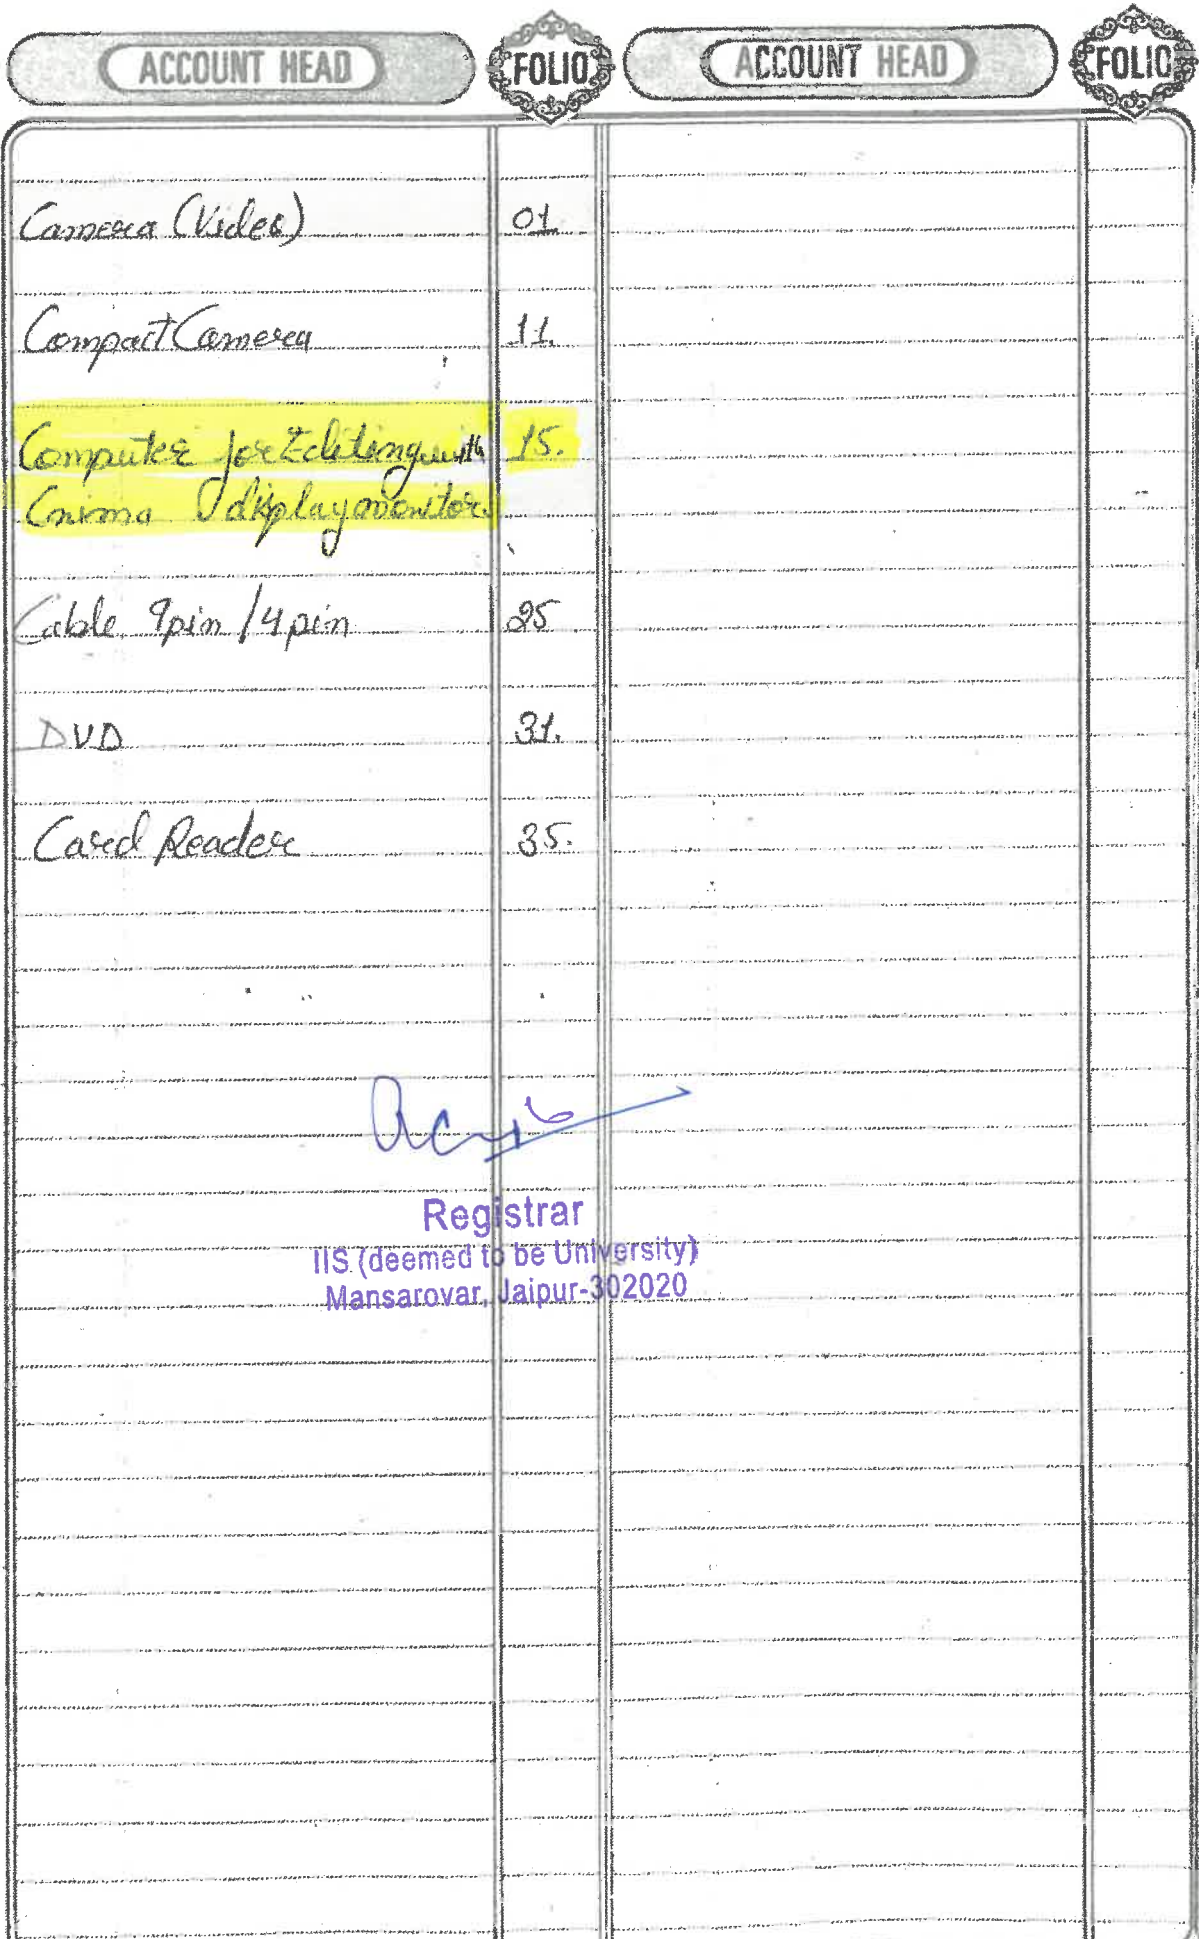 ACCOUNT HEAD FOLIO ACCOUNT HEAD FOLIO
Camera (Video) 01.
Compact Camera 11.
Computer for Editing with 15.
display monitor
Cable 9pin / 4 pin 25
DVD 31.
Card Reader 35.
Registrar
IIS (deemed to be University)
Mansarovar, Jaipur-302020